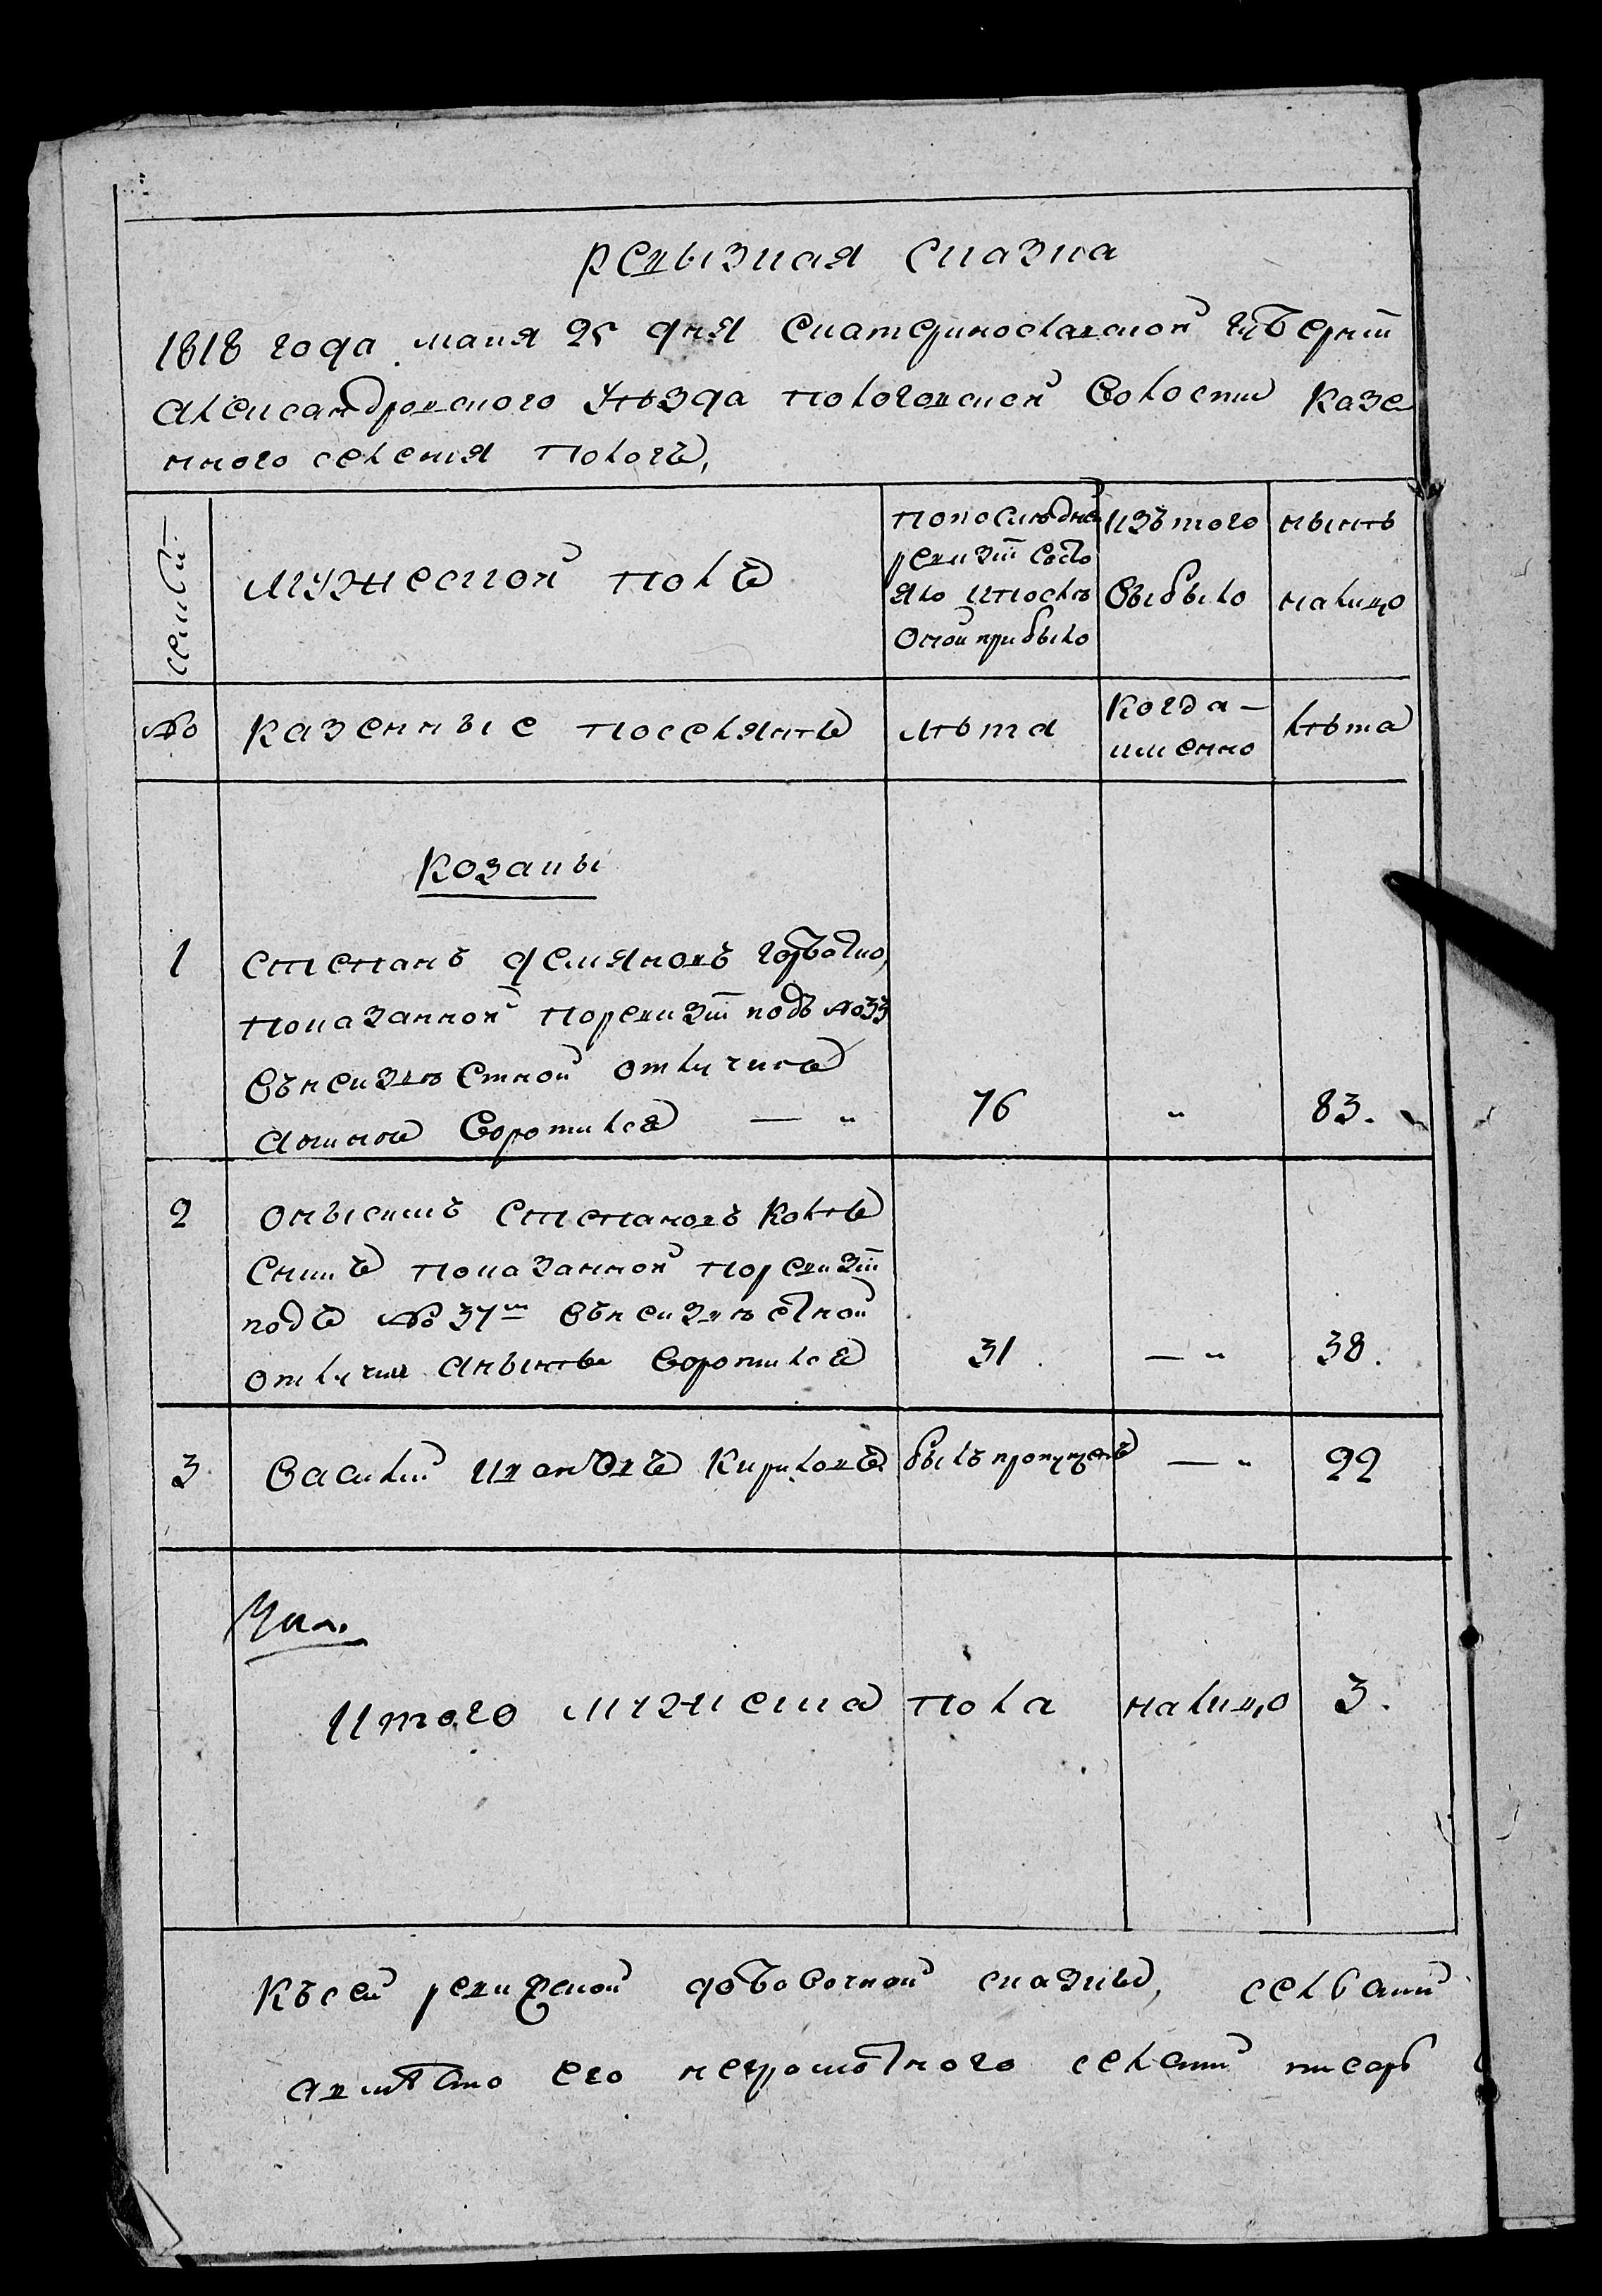 ревызная сказка
1818 года маия 25 дня Екатеринославской губерніи
Александровского уѣзда пологовской волости казе
нного селения пологъ,
семьи
мужеской полъ
по послѣдней
ревизіи состо
яло и послѣ
оной прибыло
изъ того
выбыло
нынѣ
налицо
№
казенные поселянѣ
лѣта
когда –
именно
лѣта
козаки
1
степанъ демяновъ горбатко,
показанной по ревизіи подъ № 33
въ неизвестной отлучкѣ
воротился — „
76
„
83.
2
онысимъ степановъ
показанной по ревизіи
подъ № 37м въ неизвестной
отлучки анынѣ воротился
31.
— „
38.
3
василий ивановъ кириловъ
былъ пропущенъ
— „
22
Итого мужеска пола налицо 3.
къ сей ревизской добовочной сказкѣ, селский
а вместо его неграмотного селский писарь